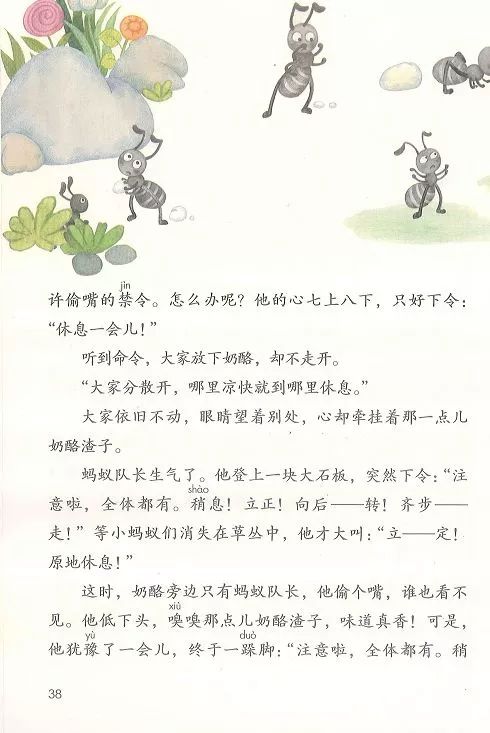 jìn
许偷嘴的禁令。怎么办呢？他的心七上八下，只好下令：
“休息一会儿！”
听到命令，大家放下奶酪，却不走开。
“大家分散开，哪里凉快就到哪里休息。”
大家依旧不动，眼睛望着别处，心却牵挂着那一点儿
奶酪渣子。
蚂蚁队长生气了。他登上一块大石板，突然下令：“注
shào
意啦，全体都有。稍息！立正！向后——转！齐步——
走！”等小蚂蚁们消失在草丛中，他才大叫：“立——定！
原地休息！”
这时，奶酪旁边只有蚂蚁队长，他偷个嘴，谁也看不
xiù
见。他低下头，嗅嗅那点儿奶酪渣子，味道真香！可是，
yù duò
他犹豫了一会儿，终于一跺脚：“注意啦，全体都有。稍
38